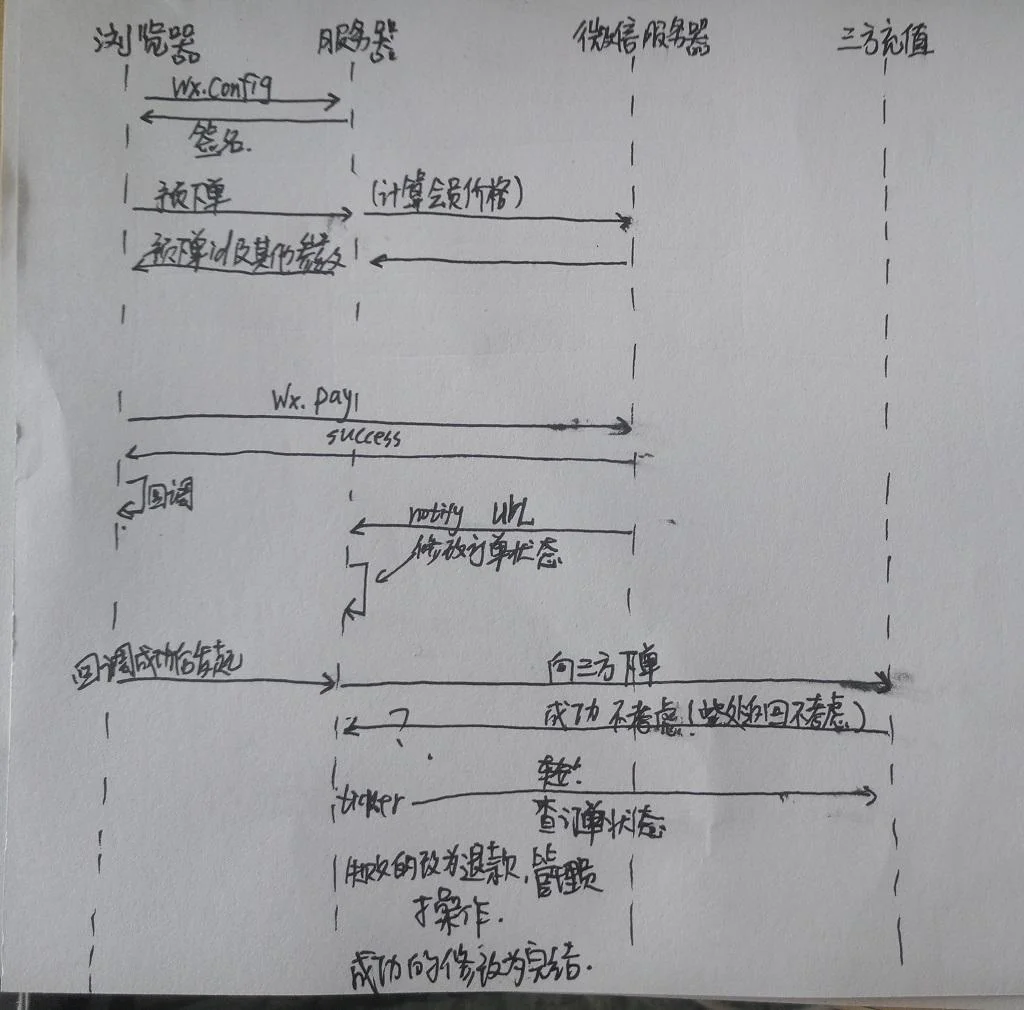 浏览器 服务器 微信服务器 三方充值
wx.config
签名.
预下单 (计算会员价格)
预下单id及其他参数
wx.pay
success
回调
notify url
修改订单状态
回调成功后发起 向三方下单
? 成功不考虑(此处返回不考虑)
ticker
查订单状态
失败的改为退款,管理员
操作.
成功的修改为完结.